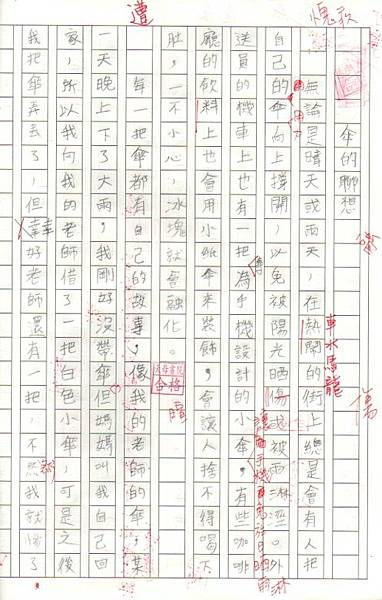 傘的聯想
無論是晴天或雨天，在熱鬧的街上總是會有人把
車水馬龍
自己的傘向上撐開，以免被陽光晒傷或被雨淋溼。外
送員的機車上也有一把為手機設計的小傘，有些咖啡
專
廳的飲料上也會用小紙傘來裝飾，會讓人捨不得喝下
肚，一不小心，冰塊就會融化。
合格
每一把傘都有自己的故事，像我的老師的傘，某
一天晚上下了大雨，我剛好沒帶傘但媽媽叫我自己回
家，所以我向我的老師借了一把白色小傘，可是之後
我把傘弄丟了，但幸好老師還有一把，不然我就慘了
遭
傷